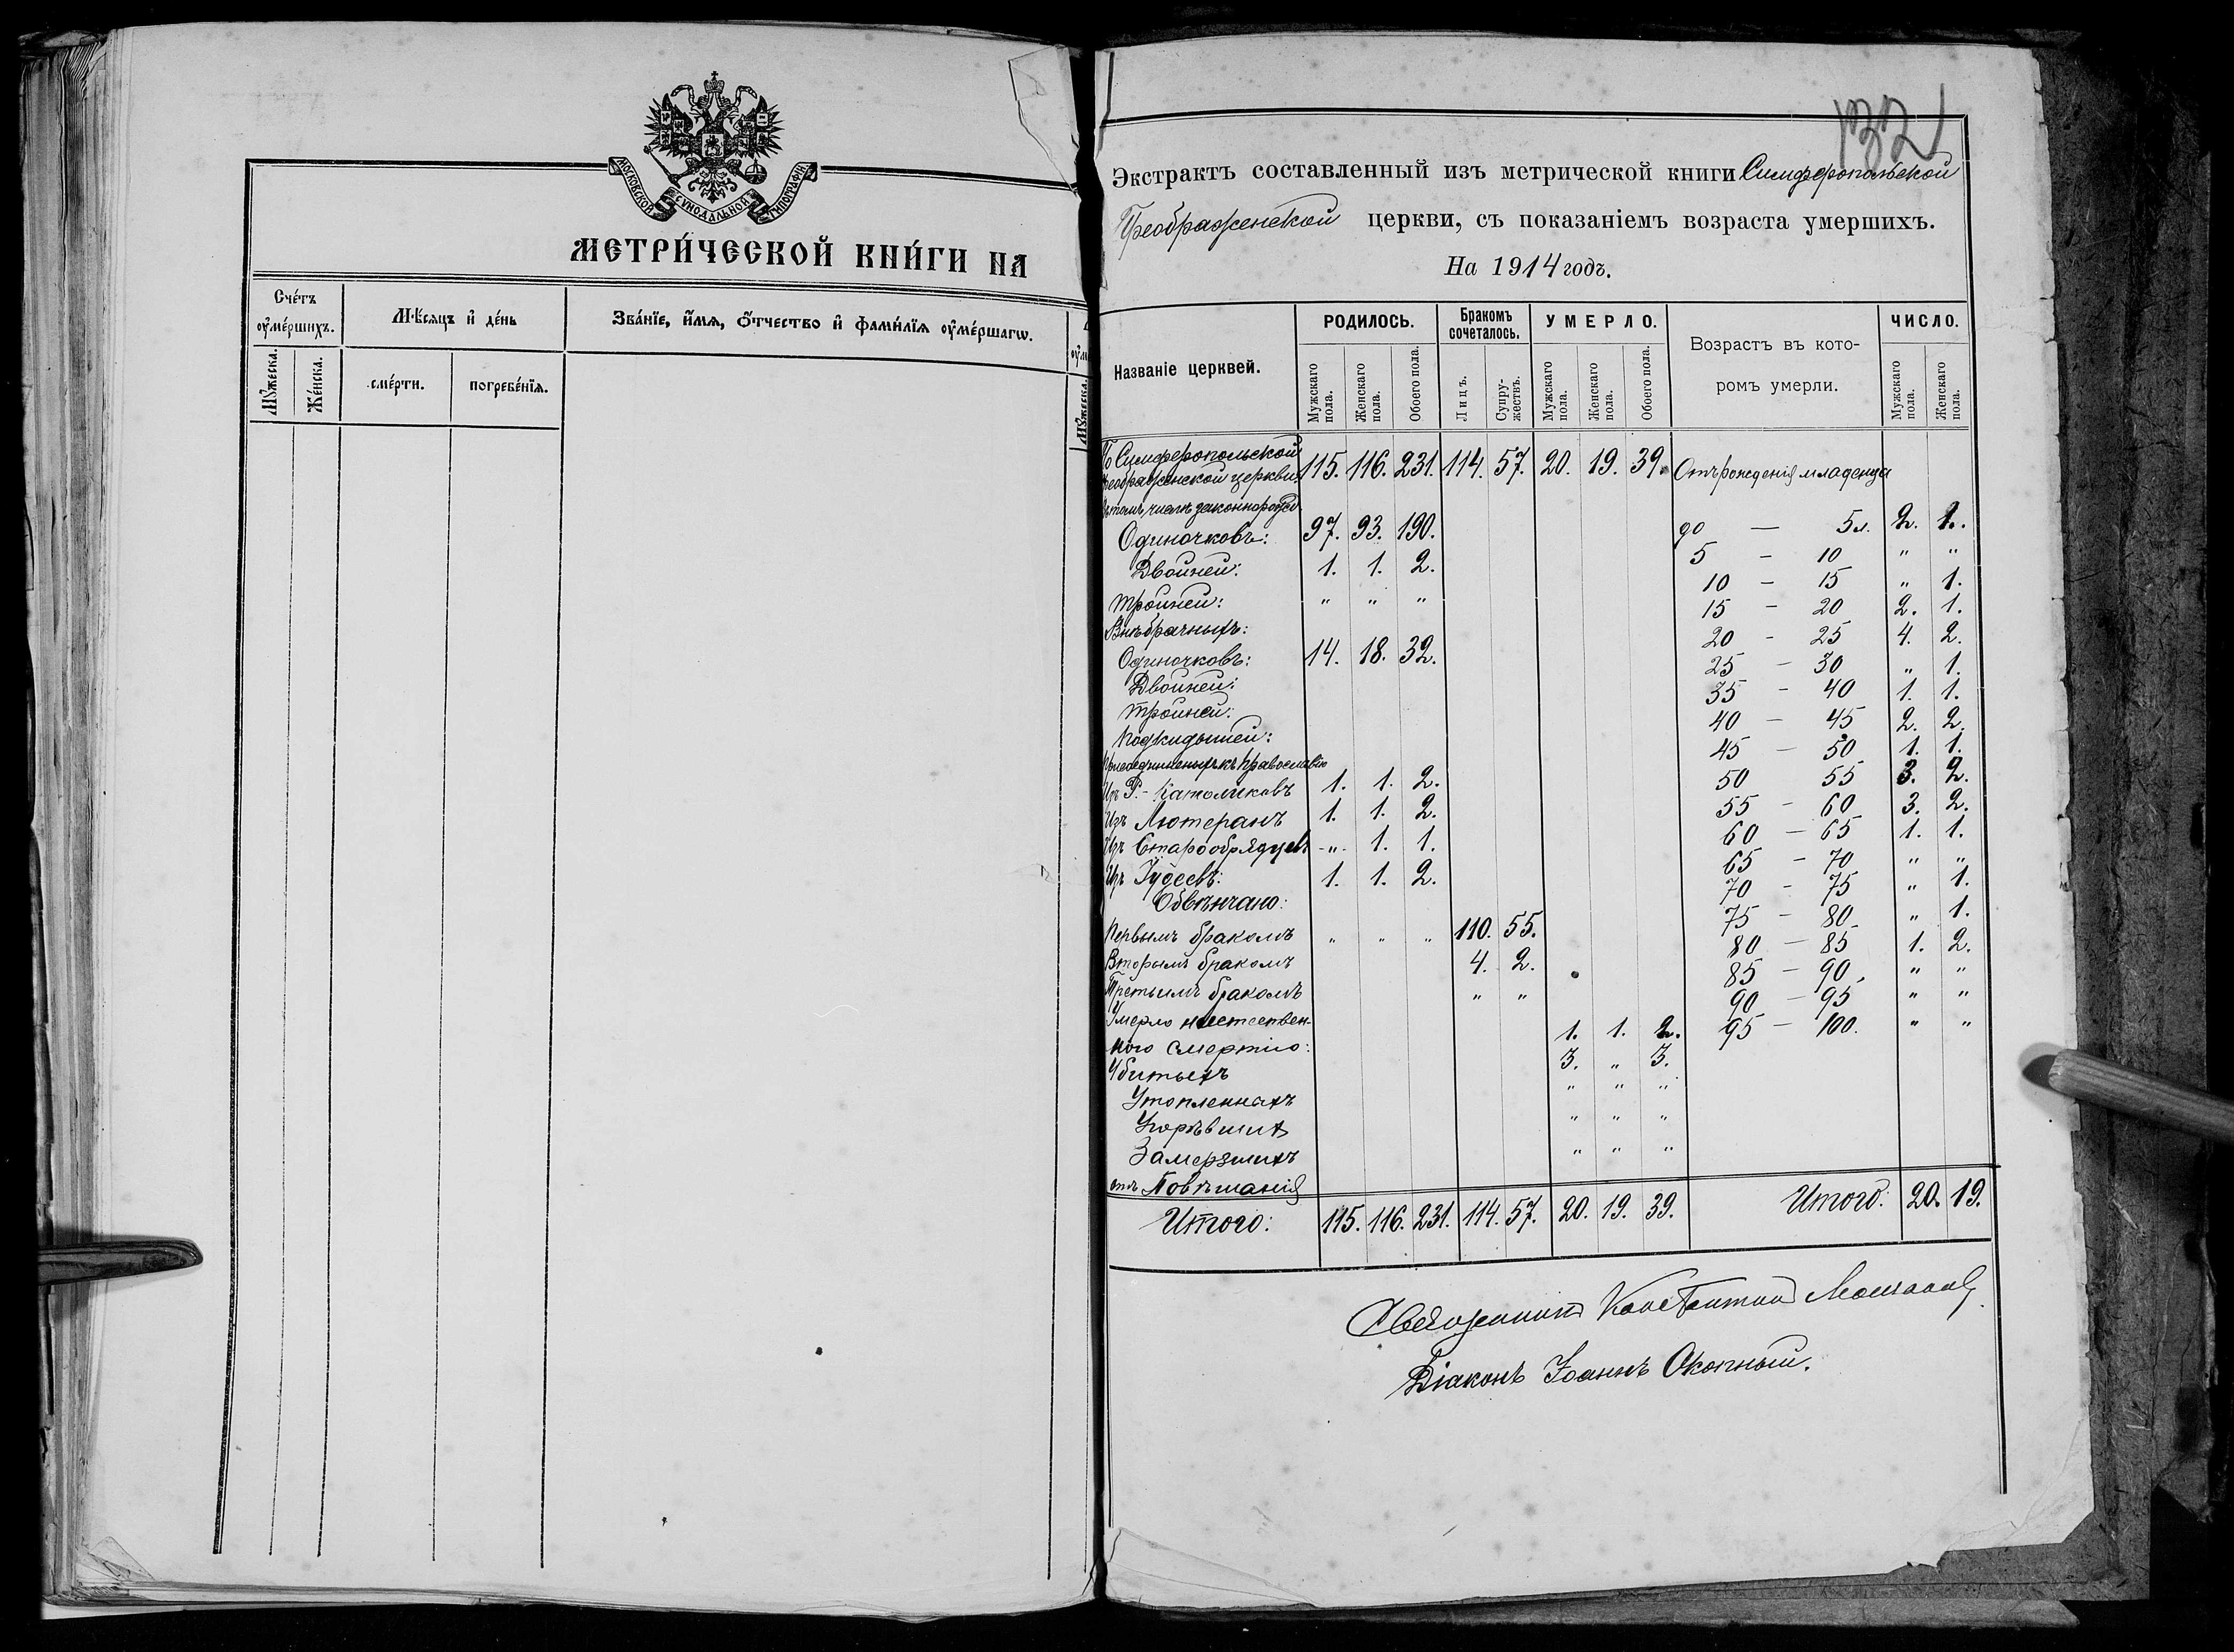 МОСКОВСКОЙ СѴНОДАЛЬНОЙ ТИПОГРАФІИ
МЕТРИ́ЧЕСКОЙ КНИ́ГИ НА
Сче́тъ ᲂу҆ме́ршихъ.
Мѣ́сяцъ и҆ де́нь
Зва́нїе, и҆́мѧ, ѻ҆́тчество и҆ фами́лїѧ ᲂу҆ме́ршагѡ.
Мꙋ́жеска.
Же́нска.
сме́рти.
погребе́нїѧ.
Мꙋ́жеска.
132
Экстрактъ составленный изъ метрической книги Симферопольской
Преображенской церкви, съ показаніемъ возраста умершихъ.
На 1914 годъ.
Названіе церквей.
РОДИЛОСЬ.
Бракомъ сочеталось.
УМЕРЛО.
Возрастъ въ кото-
ромъ умерли.
ЧИСЛО.
Мужскаго пола.
Женскаго пола.
Обоего пола.
Лицъ.
Супру-
жествъ.
Мужскаго пола.
Женскаго пола.
Обоего пола.
Мужскаго пола.
Женскаго пола.
По Симферопольской
Преображенской церкви 115. 116. 231. 114. 57. 20. 19. 39. Отъ рожденія младенца
Въ томъ числѣ законнорожд.
Одиночковъ: 97. 93. 190. до — 5 л. 2. 1.
Двойней: 1. 1. 2. 5 - 10 " "
Тройней: " " " 10 - 15 " 1.
Внѣбрачныхъ: 15 - 20 2. 1.
Одиночковъ: 14. 18. 32. 20 - 25 4. 2.
Двойней: 25 - 30 " 1.
Тройней: 35 - 40 1. 1.
Подкидышей: 40 - 45 2. 2.
Присоединенныхъ къ Православію 45 - 50 1. 1.
Изъ Р.-Католиковъ 1. 1. 2. 50 55 3. 2.
Изъ Лютеранъ 1. 1. 2. 55 - 60 3. 2.
Изъ Старообрядцевъ -"- 1. 1. 60 - 65 1. 1.
Изъ Іудеевъ: 1. 1. 2. 65 - 70 " "
Обвѣнчано: 70 - 75 " 1.
Первымъ бракомъ " " " 110. 55. 75 - 80 " 1.
Вторымъ бракомъ 4. 2. 80 - 85 1. 2.
Третьимъ бракомъ " " 85 - 90 " "
Умерло неестествен- 90 - 95 " "
ного смертію: 1. 1. 2. 95 - 100. " "
Убитыхъ 3. " 3.
Утопленныхъ " " "
Угорѣвшихъ " " "
Замерзшихъ " " "
отъ Повѣшанія
Итого: 115. 116. 231. 114. 57. 20. 19. 39. Итого: 20. 19.
Священникъ Константинъ
Діаконъ Іоаннъ Окопный.